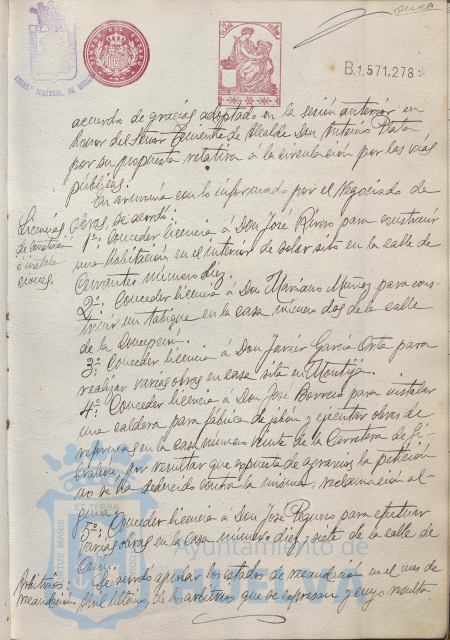 once
B.1.571.278
acuerdo de gracias adoptado en la sesión anterior en
honor del Señor Teniente de Alcalde Don Antonio Plata
por su propuesta relativa á la circulación por las vías
públicas.
En armonía con lo informado por el Negociado de
Obras, se acordó:
Licencias
de construcción
é instala-
ciones.
1º: Conceder licencia á Don José Rivero para construir
una habitación en el interior de solar sito en la calle de
Cervantes número diez.
2º: Conceder licencia á Don Mariano Muñoz para cons-
truir un tabique en la casa número dos de la calle
de la Concepción.
3º: Conceder licencia á Don Javier García Orta para
realizar varias obras en casa sita en Montija.
4º: Conceder licencia á Don José Borrero para instalar
una caldera para fábrica de jabón y ejecutar obras de
reformas en la casa número veinte de la Carretera de Gi-
braleón, por resultar que expuesta de agravios la petición
no se ha deducido contra la misma, reclamación al-
guna.
5º: Conceder licencia á Don José Peguero para efectuar
varias obras en la casa número diez y siete de la calle de
Ayuntamiento de
Arbitrios.
Recaudación
Se acordó aprobar los estados de recaudación en el mes de
último, de los arbitrios que se expresan y cuyo resulta